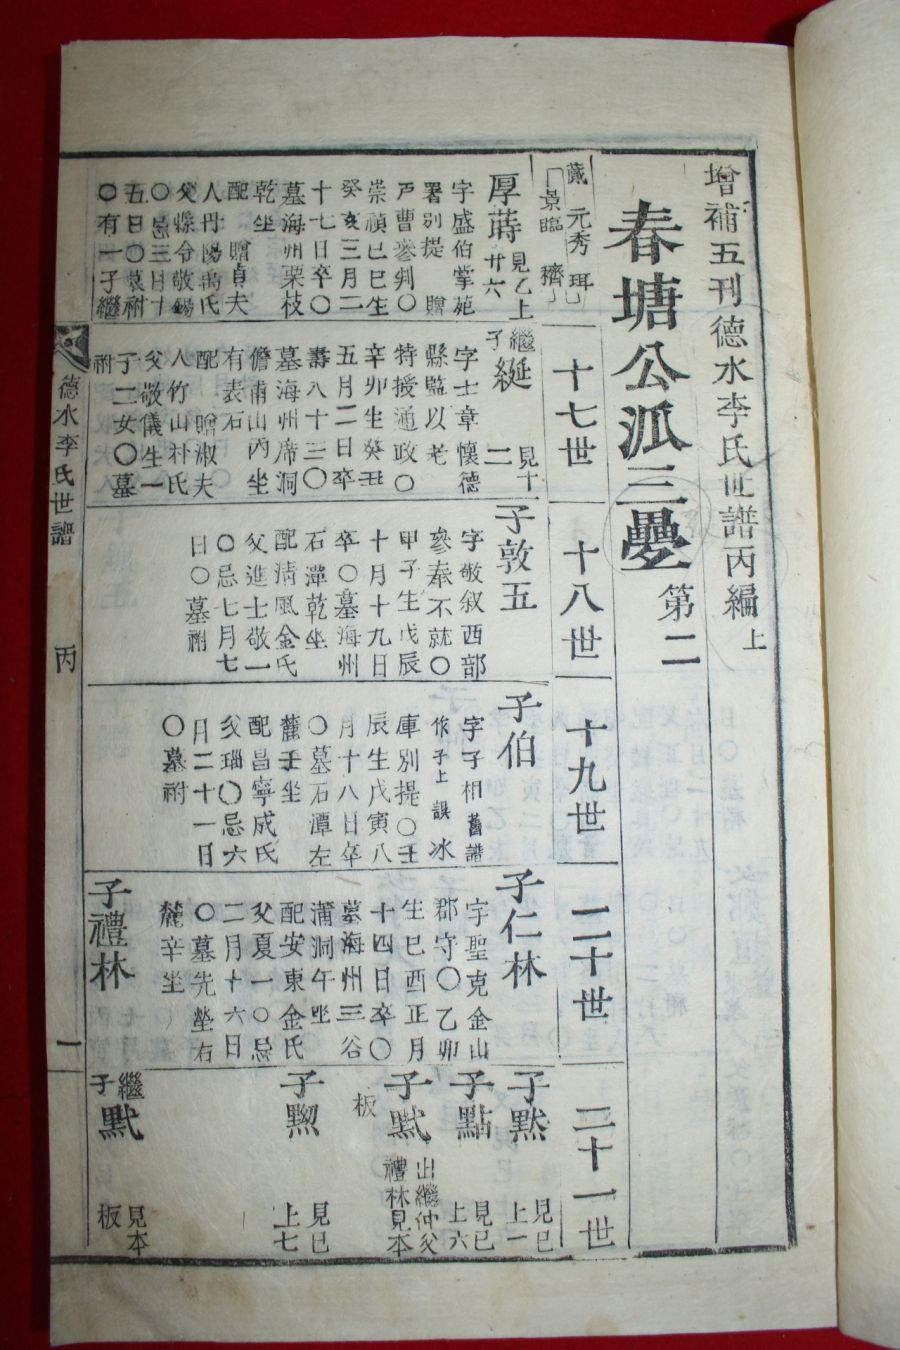 增補五刊德水李氏世譜丙編上
春塘公派三疊第二
十七世
十八世
十九世
二十世
二十一世
元秀
景臨
厚蒔
見乙上
廿六
字盛伯掌苑
署別提 贈
戶曹參判〇
崇禎己巳生
癸亥三月二
十七日卒〇
墓海州栗枝
乾坐
配 贈貞夫
人丹陽禹氏
父縣令敬錫
〇忌三月十
五日〇墓祔
〇有一子繼
繼子綖
見十二
字士章懷德
縣監以老
特授通政〇
辛卯生癸丑
五月二日卒
壽八十三〇
墓海州席洞
儋甫山丙坐
有表石
配 贈淑夫
人竹山朴氏
父敬儀生一
子二女〇墓
祔
子敦五
字敬叙西部
參奉不就〇
甲子生戊辰
十月十九日
卒〇墓海州
石潭乾坐
配淸風金氏
父進士敬一
〇忌七月七
日〇墓祔
子伯
字子相舊譜
作子上誤 氷
庫別提〇壬
辰生戊寅八
月十八日卒
〇墓石潭左
麓壬坐
配昌寧成氏
父瑙〇忌六
月二十一日
〇墓祔
子仁林
字聖克金山
郡守〇乙卯
生己酉正月
十四日卒〇
墓海州三谷
蒲洞午坐
配安東金氏
父夏一〇忌
二月十六日
〇墓先塋右
麓辛坐
子禮林
子㸃
見巳上一
子點
見巳上六
子默
出繼仲父
禮林見本
板
子㷤
見巳上七
繼子默
見本板
德水李氏世譜
丙
一